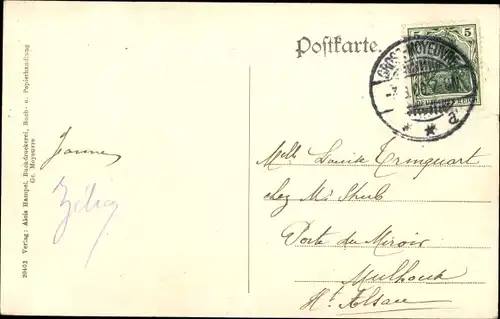 Postkarte.
5 5
DEUTSCHES REICH
GROSS-MOYEUVRE
a
Melle Louise Tringuart
chez Mr Stub
Porte du Miroir
Mulhouse
Hte Alsace
20403 Verlag: Alois Hampel, Buchdruckerei, Buch- u. Papierhandlung
Gr. Moyeuvre